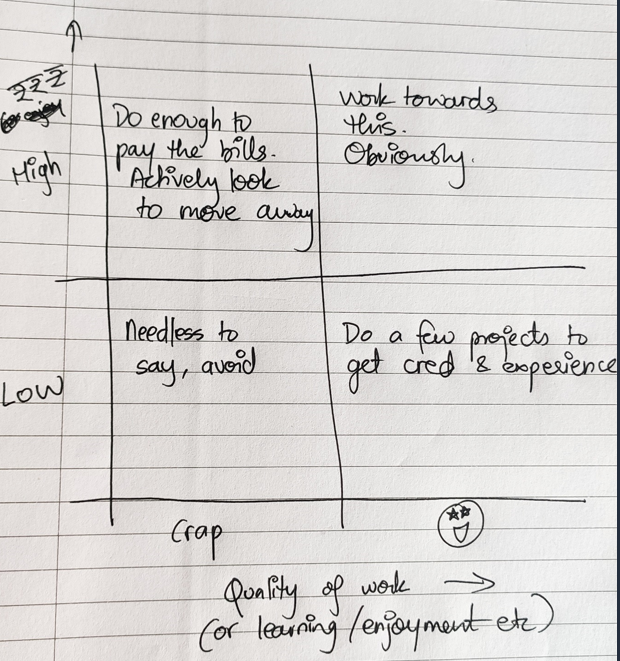 ₹₹₹
High
Do enough to
pay the bills.
Actively look
to move away
Work towards
this.
Obviously.
LOW
Needless to
say, avoid
Do a few projects to
get cred & experience
Crap
Quality of work →
(or learning/enjoyment etc)